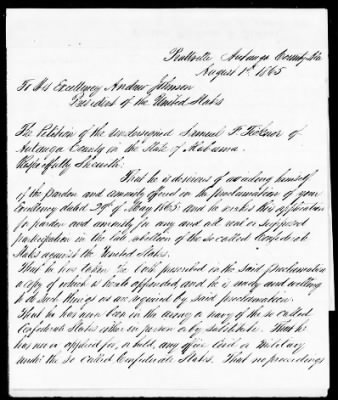 Prattville Autauga County Ala
August 1st 1865
To His Excellency Andrew Johnson
President of the United States
The Petition of the undersigned Samuel F. of
Autauga County in the State of Alabama.
Respectfully Sheweth.
That he is desirous of availing himself
of the pardon and amnesty offered in the proclamation of your
Excellency dated 29th of May 1865 and he makes this application
for pardon and amnesty for any and all real or supposed
participation in the late rebellion of the so called Confederate
States against the United States.
That he has taken the oath prescribed in the said proclamation
a copy of which is hereto appended, and he is ready and willing
to do such things as are required by said proclamation.
That he has never been in the army or navy of the so called
Confederate States either in person or by substitute. That he
has never applied for, or held, any office civil or military
under the so called Confederate States. That no proceedings